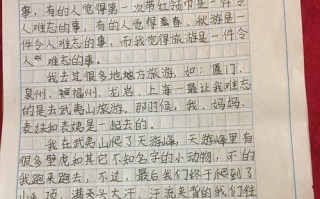 事，有的人觉得第一次带红领巾是一件
令人难忘的事，有的人觉得春春、秋游是一件
令人难忘的事，而我觉得旅游是一件令
人难忘的事。
我去过很多地地方旅游，如：厦门、
泉州、福州、龙岩、上海…最让我难忘
的是去武夷山旅游。那时候，我、妈妈、
表妹和表姨是一起去的。
我在武夷山爬了天游峰，天游峰里有
很多壁虎和其它不知名字的小动物，不的
我跑来跑去，不过，最后我们终于爬到了
山顶，满天头大汗、汗流夹背的我们往